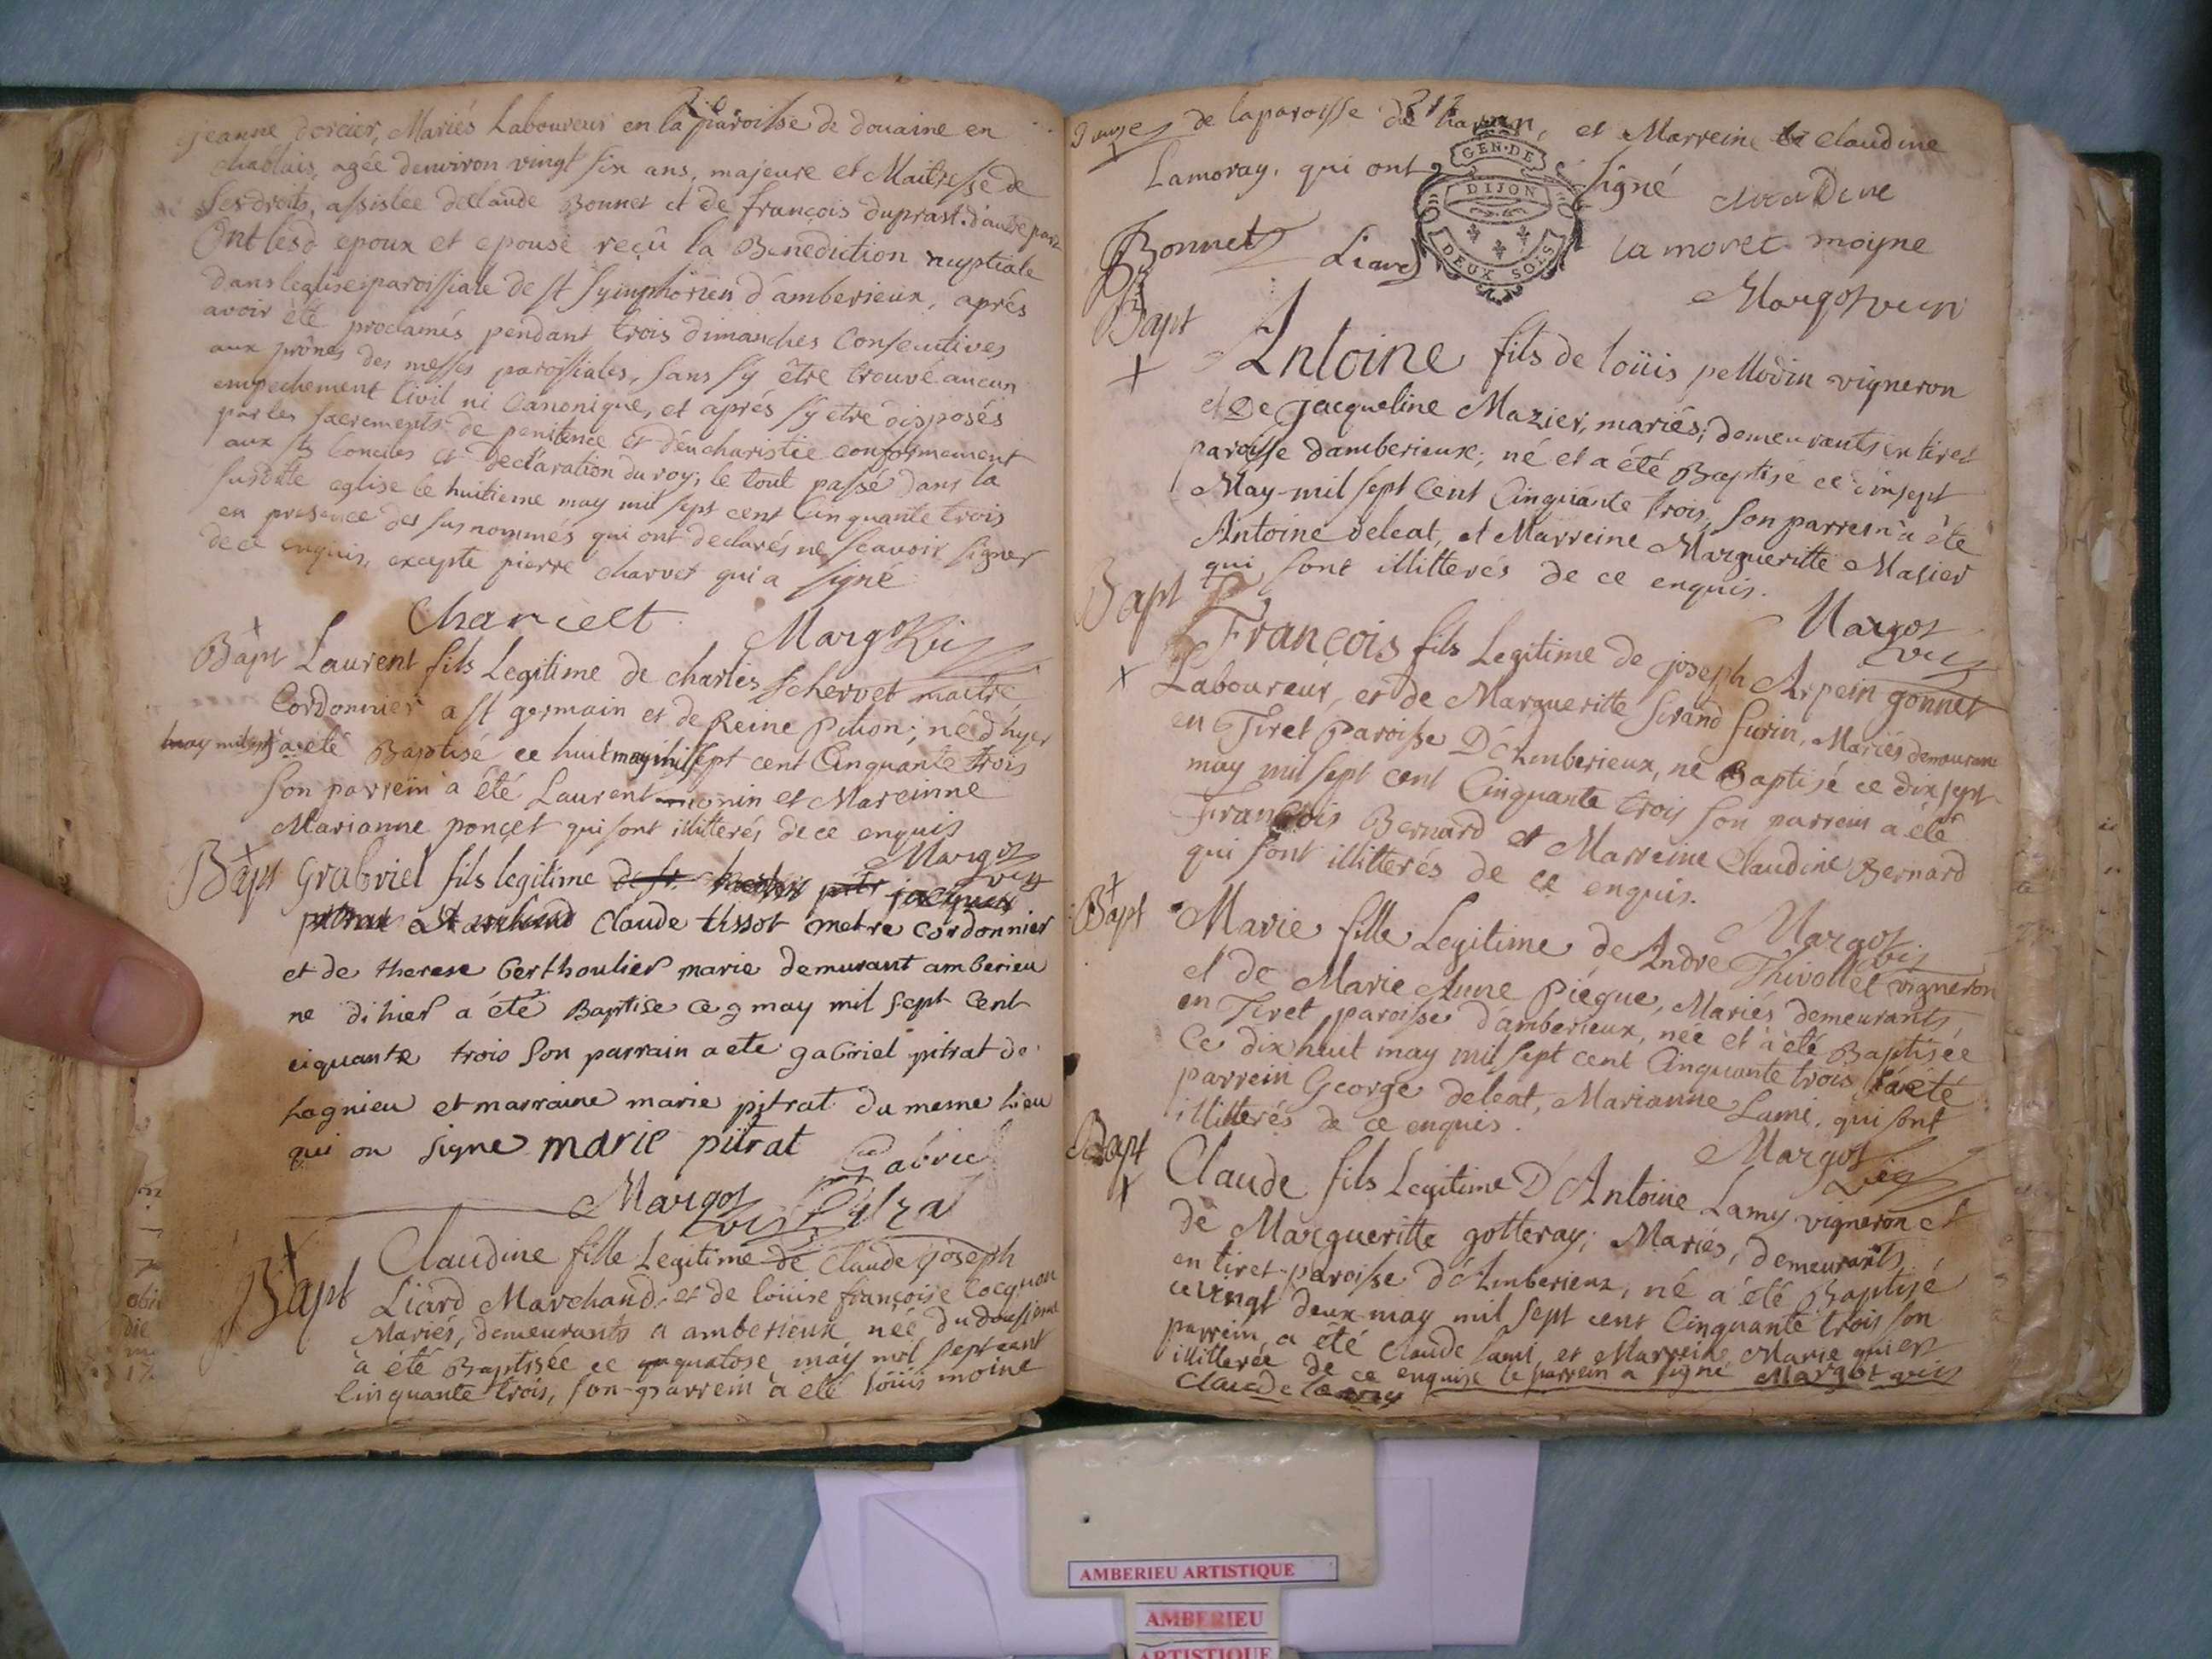 jeanne dorcier, Mariés Laboureur en la paroisse de douaine en
chablais, agée denviron vingt six ans, majeure et Maitresse de
ses droits, assistée de Claude Bonnet et de françois duprast. d'autre part
Ont lesd epoux et epouse reçû la Benediction nuptiale
dans leglise paroissiale de st symphorien d'amberieux, aprés
avoir été proclamés pendant trois dimanches Consecutives
aux prônes des messes paroissiales, sans sy être trouvé aucun
empechement Civil ni Canonique, et aprés sy etre disposés
par les sacrements de penitence et d'eucharistie conformement
aux sts Conciles et declaration du roy; le tout passé dans la
susditte eglise le huitieme may mil sept cent Cinquante trois
en presence des sus nommés qui ont declarés ne scavoir signer
de ce enquis, excepte pierre charvet qui a signé
Charvet Margot
Bapt Laurent fils Legitime de charles Schervet maitre
Cordonnier a st germain et de Reine Pition; né d'hyer
a eté Baptisé ce huit may mil sept cent Cinquante trois
son parrein à été Laurent monin et Mareinne
Marianne ponçet qui sont illitterés de ce enquis
Margot
Bapt Grabriel fils legitime
Claude tissot metre cordonnier
et de therese berthoulier marie demurant amberieu
ne di hier a été Baptise ce 9 may mil sept cent
ciquante trois son parrain a ete gabriel pitrat de
Lagnieu et marraine marie pitrat du meme lieu
qui on signe marie pitrat Gabriel
Margot Pitra
Bapt Claudine fille Legitime de Claude joseph
Liard Marchand et de loüise françoise Cocquan
Mariés, demeurants a amberieux née du
à été Baptisée ce quatose may mil sept cent
Cinquante trois, son parrein à été loüis moine
de la paroisse de et Marreine Claudine
Lamoray, qui ont signé claudine
Bonnet Liard la moret moyne
Margot
GEN·DE
DIJON
DEUX SOLS
Bapt Antoine fils de loüis pellodin vigneron
et De jacqueline Mazier, mariés; demeurants en tiret
paroisse damberieux; né et a été Baptisé ce dixsept
May mil sept Cent Cinquante trois, son parrein a été
Antoine deleat, et Marreine Margueritte Masier
qui sont illitterés de ce enquis.
Margot
Bapt François fils Legitime de joseph Arpein gonnet
Laboureur, et de Margueritte sirand furin, Mariés demourant
en Tiret Paroisse D'Amberieux, né Baptisé ce dix sept
may mil sept cent Cinquante trois son parrein a été
François Bernard et Marreine Claudine Bernard
qui sont illitterés de ce enquis.
Margot
Bapt Marie fille Legitime de André Thivollet vigneron
et de Marie Anne piégue, Mariés demeurants,
en Tiret paroisse d'amberieux, née et à été Baptisée
Ce dix huit may mil sept cent Cinquante trois à été
parrein George deleat, Marianne Lami, qui sont
illitterés de ce enquis.
Margot
Bapt Claude fils Legitime D'Antoine Lamy vigneron et
de Margueritte gotteray; Mariés, demeurants
en tiret paroisse d'Amberieux, né a été Baptisé
ce vingt deux may mil sept cent Cinquante trois son
parrein a été Claude lami et Marreine Marie qui est
illitterée de ce enquise le parrein a signé Margot
Claude lamy
AMBERIEU ARTISTIQUE
AMBERIEU
ARTISTIQUE